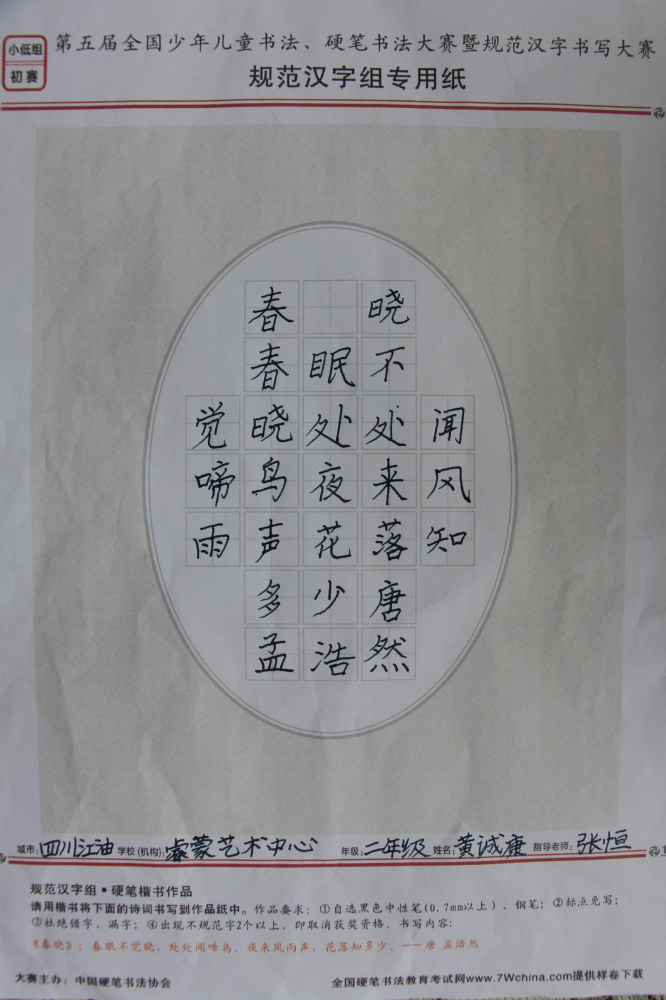 小低组
初赛
第五届全国少年儿童书法、硬笔书法大赛暨规范汉字书写大赛
规范汉字组专用纸
春 晓
春眠不
觉晓处处闻
啼鸟夜来风
雨声花落知
多少唐
孟浩然
城市:四川江油 学校(机构):睿蒙艺术中心 年级:二年级 姓名:黄诚康 指导老师:张恒
规范汉字组·硬笔楷书作品
请用楷书将下面的诗词书写到作品纸中。作品要求:①自选黑色中性笔(0.7mm以上)、钢笔;②标点免写;
③杜绝错字,漏字;④出现不规范字2个以上,即取消获奖资格。书写内容:
《春晓》:春眠不觉晓,处处闻啼鸟。夜来风雨声,花落知多少。——唐 孟浩然
大赛主办:中国硬笔书法协会 全国硬笔书法教育考试网www.7Wchina.com提供样卷下载